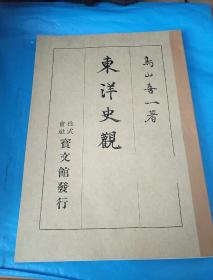 鳥山喜一著
東洋史觀
株式
會社
寶文館發行